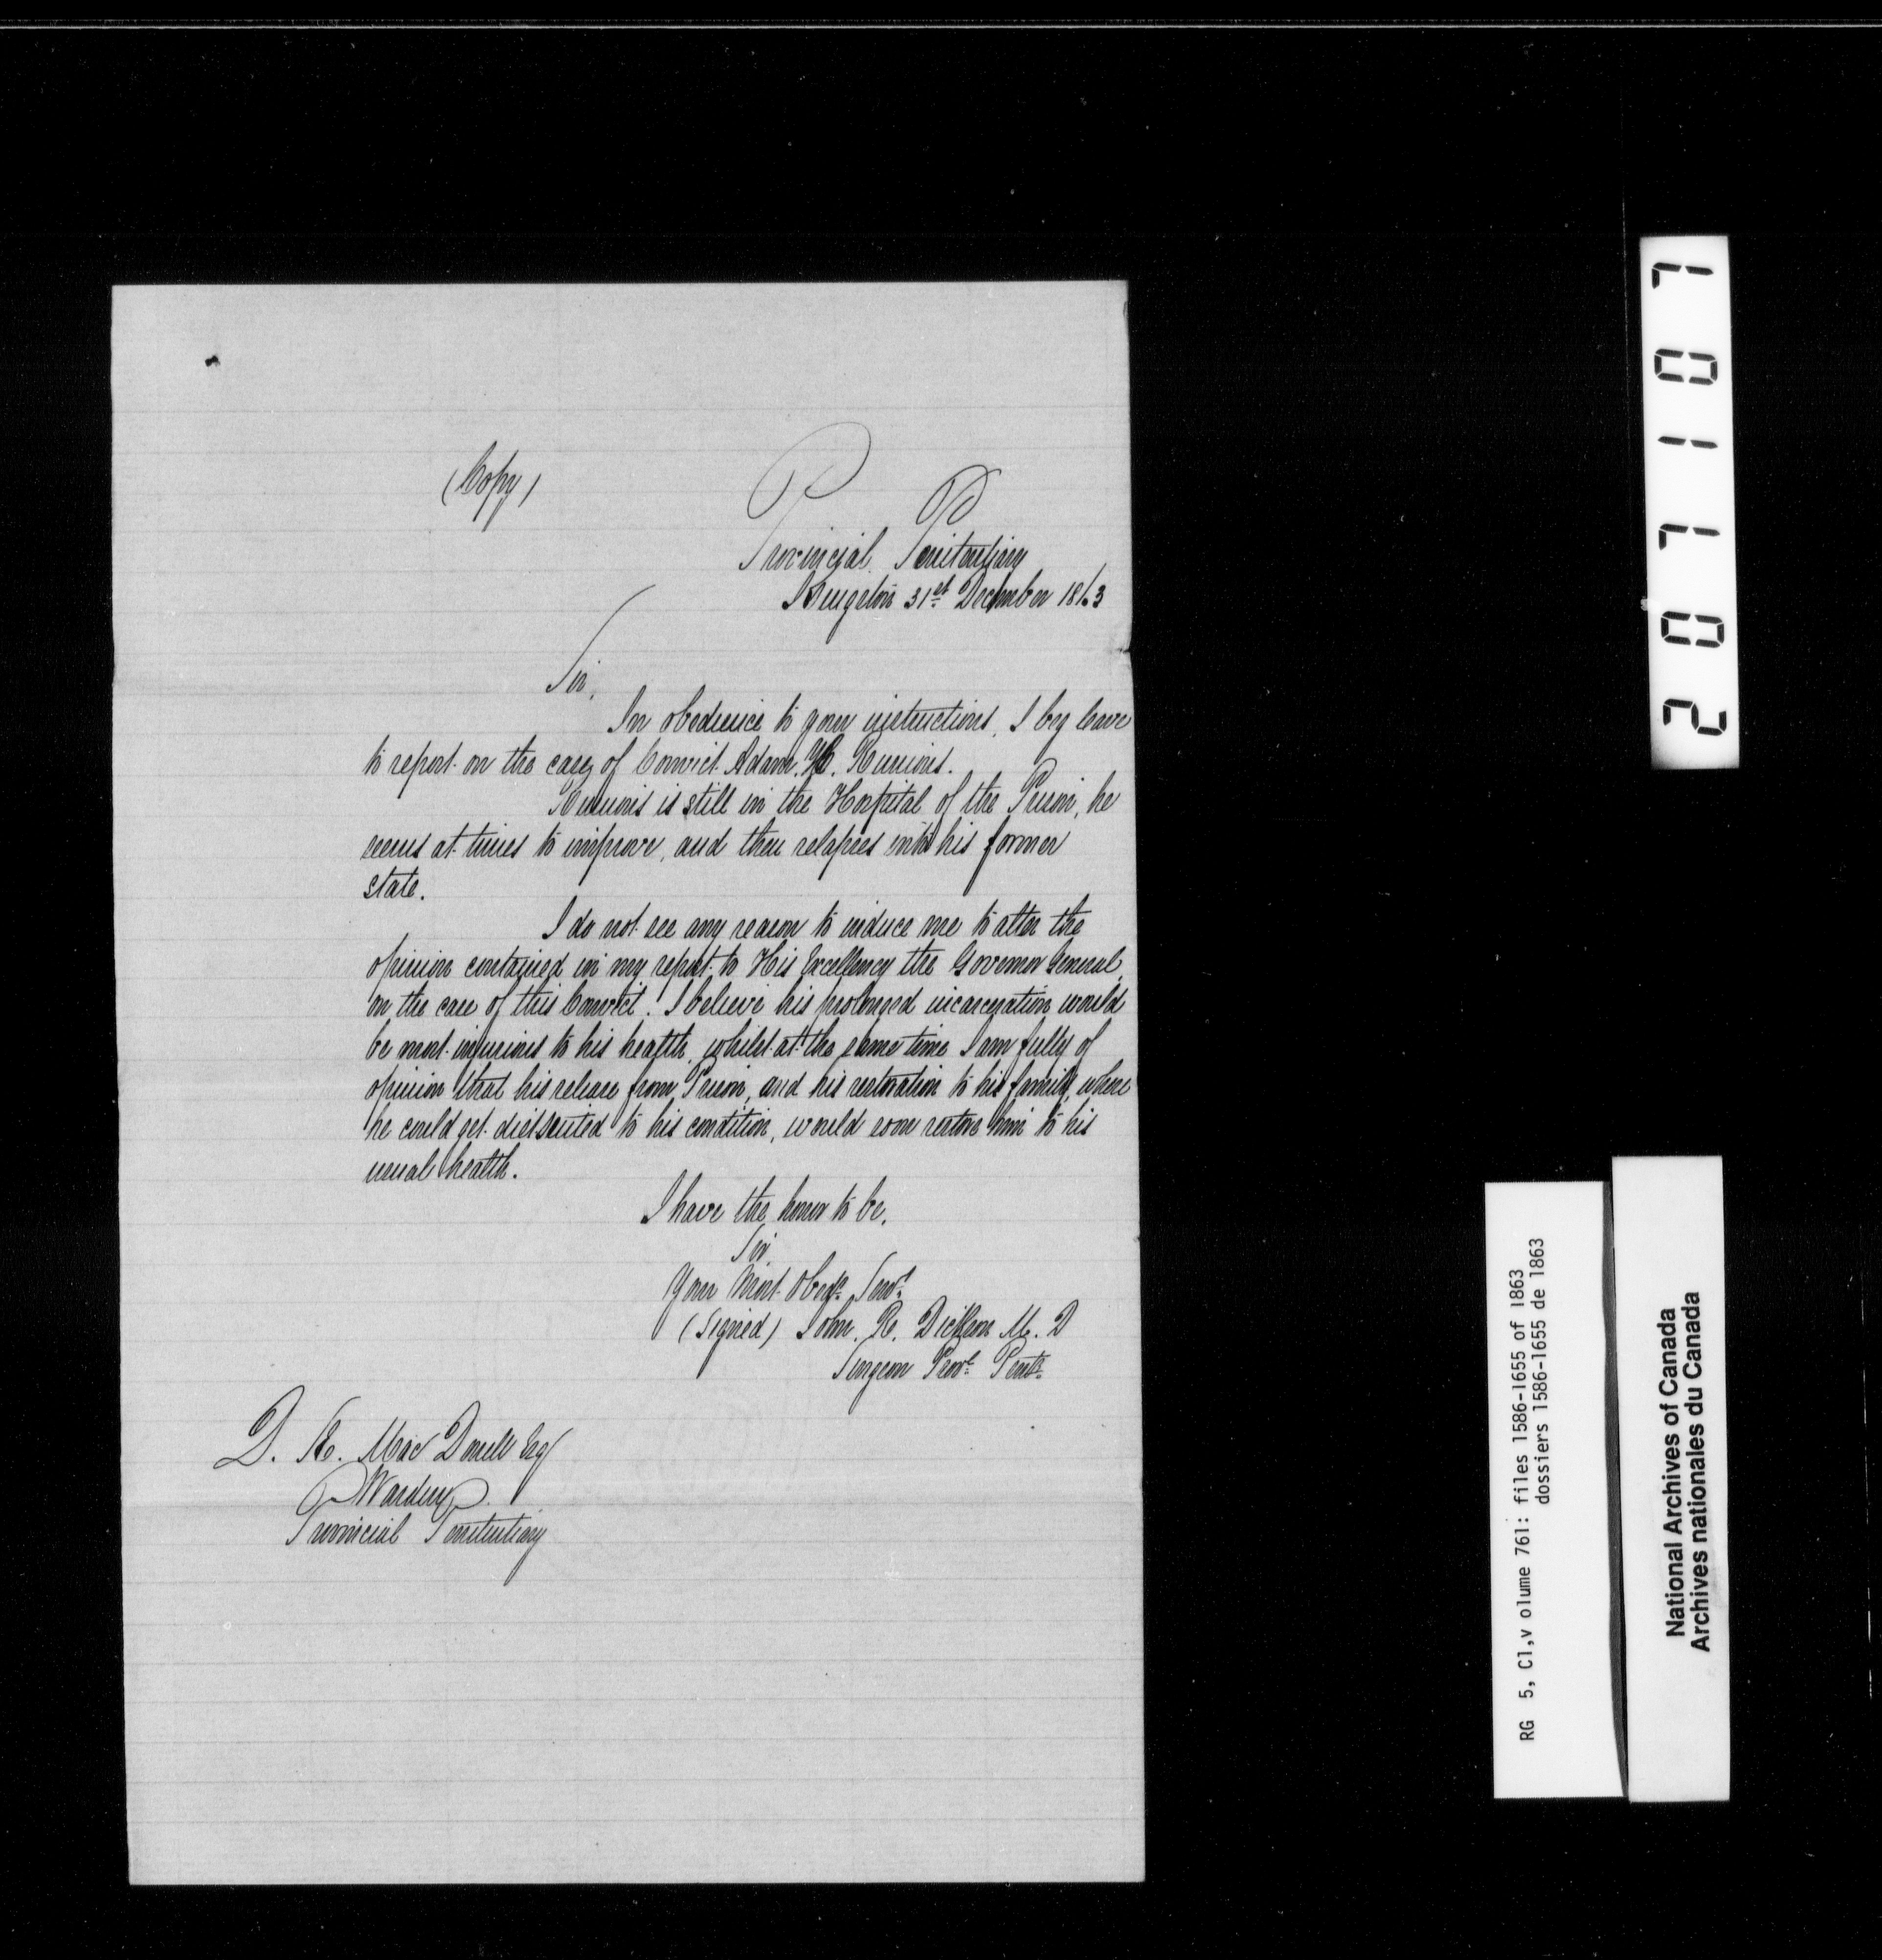 (Copy)
Provincial Penitentiary
Kingston 31st December 1863
Sir,
In obedience to your instructions, I beg leave
to report on the case of Convict Adam H.
is still in the Hospital of the Prison, he
seems at times to improve, and then relapses into his former
state.
I do not see any reason to induce me to alter the
opinion contained in my report to His Excellency the Governor General,
on the case of this Convict. I believe his prolonged incarceration would
be most injurious to his health, whilst at the same time I am fully of
opinion that his release from Prison, and his restoration to his family, where
he could get diet suited to his condition, would soon restore him to his
usual health.
I have the honor to be,
Sir
Your Most Obedt. Servt.
(Signed) John R. Dickson M. D
Surgeon Provl. Penty.
D. Æ. Mac Donell Esq
Warden
Provincial Penitentiary
2071107
RG 5, C1,v olume 761: files 1586-1655 of 1863
dossiers 1586-1655 de 1863
National Archives of Canada
Archives nationales du Canada